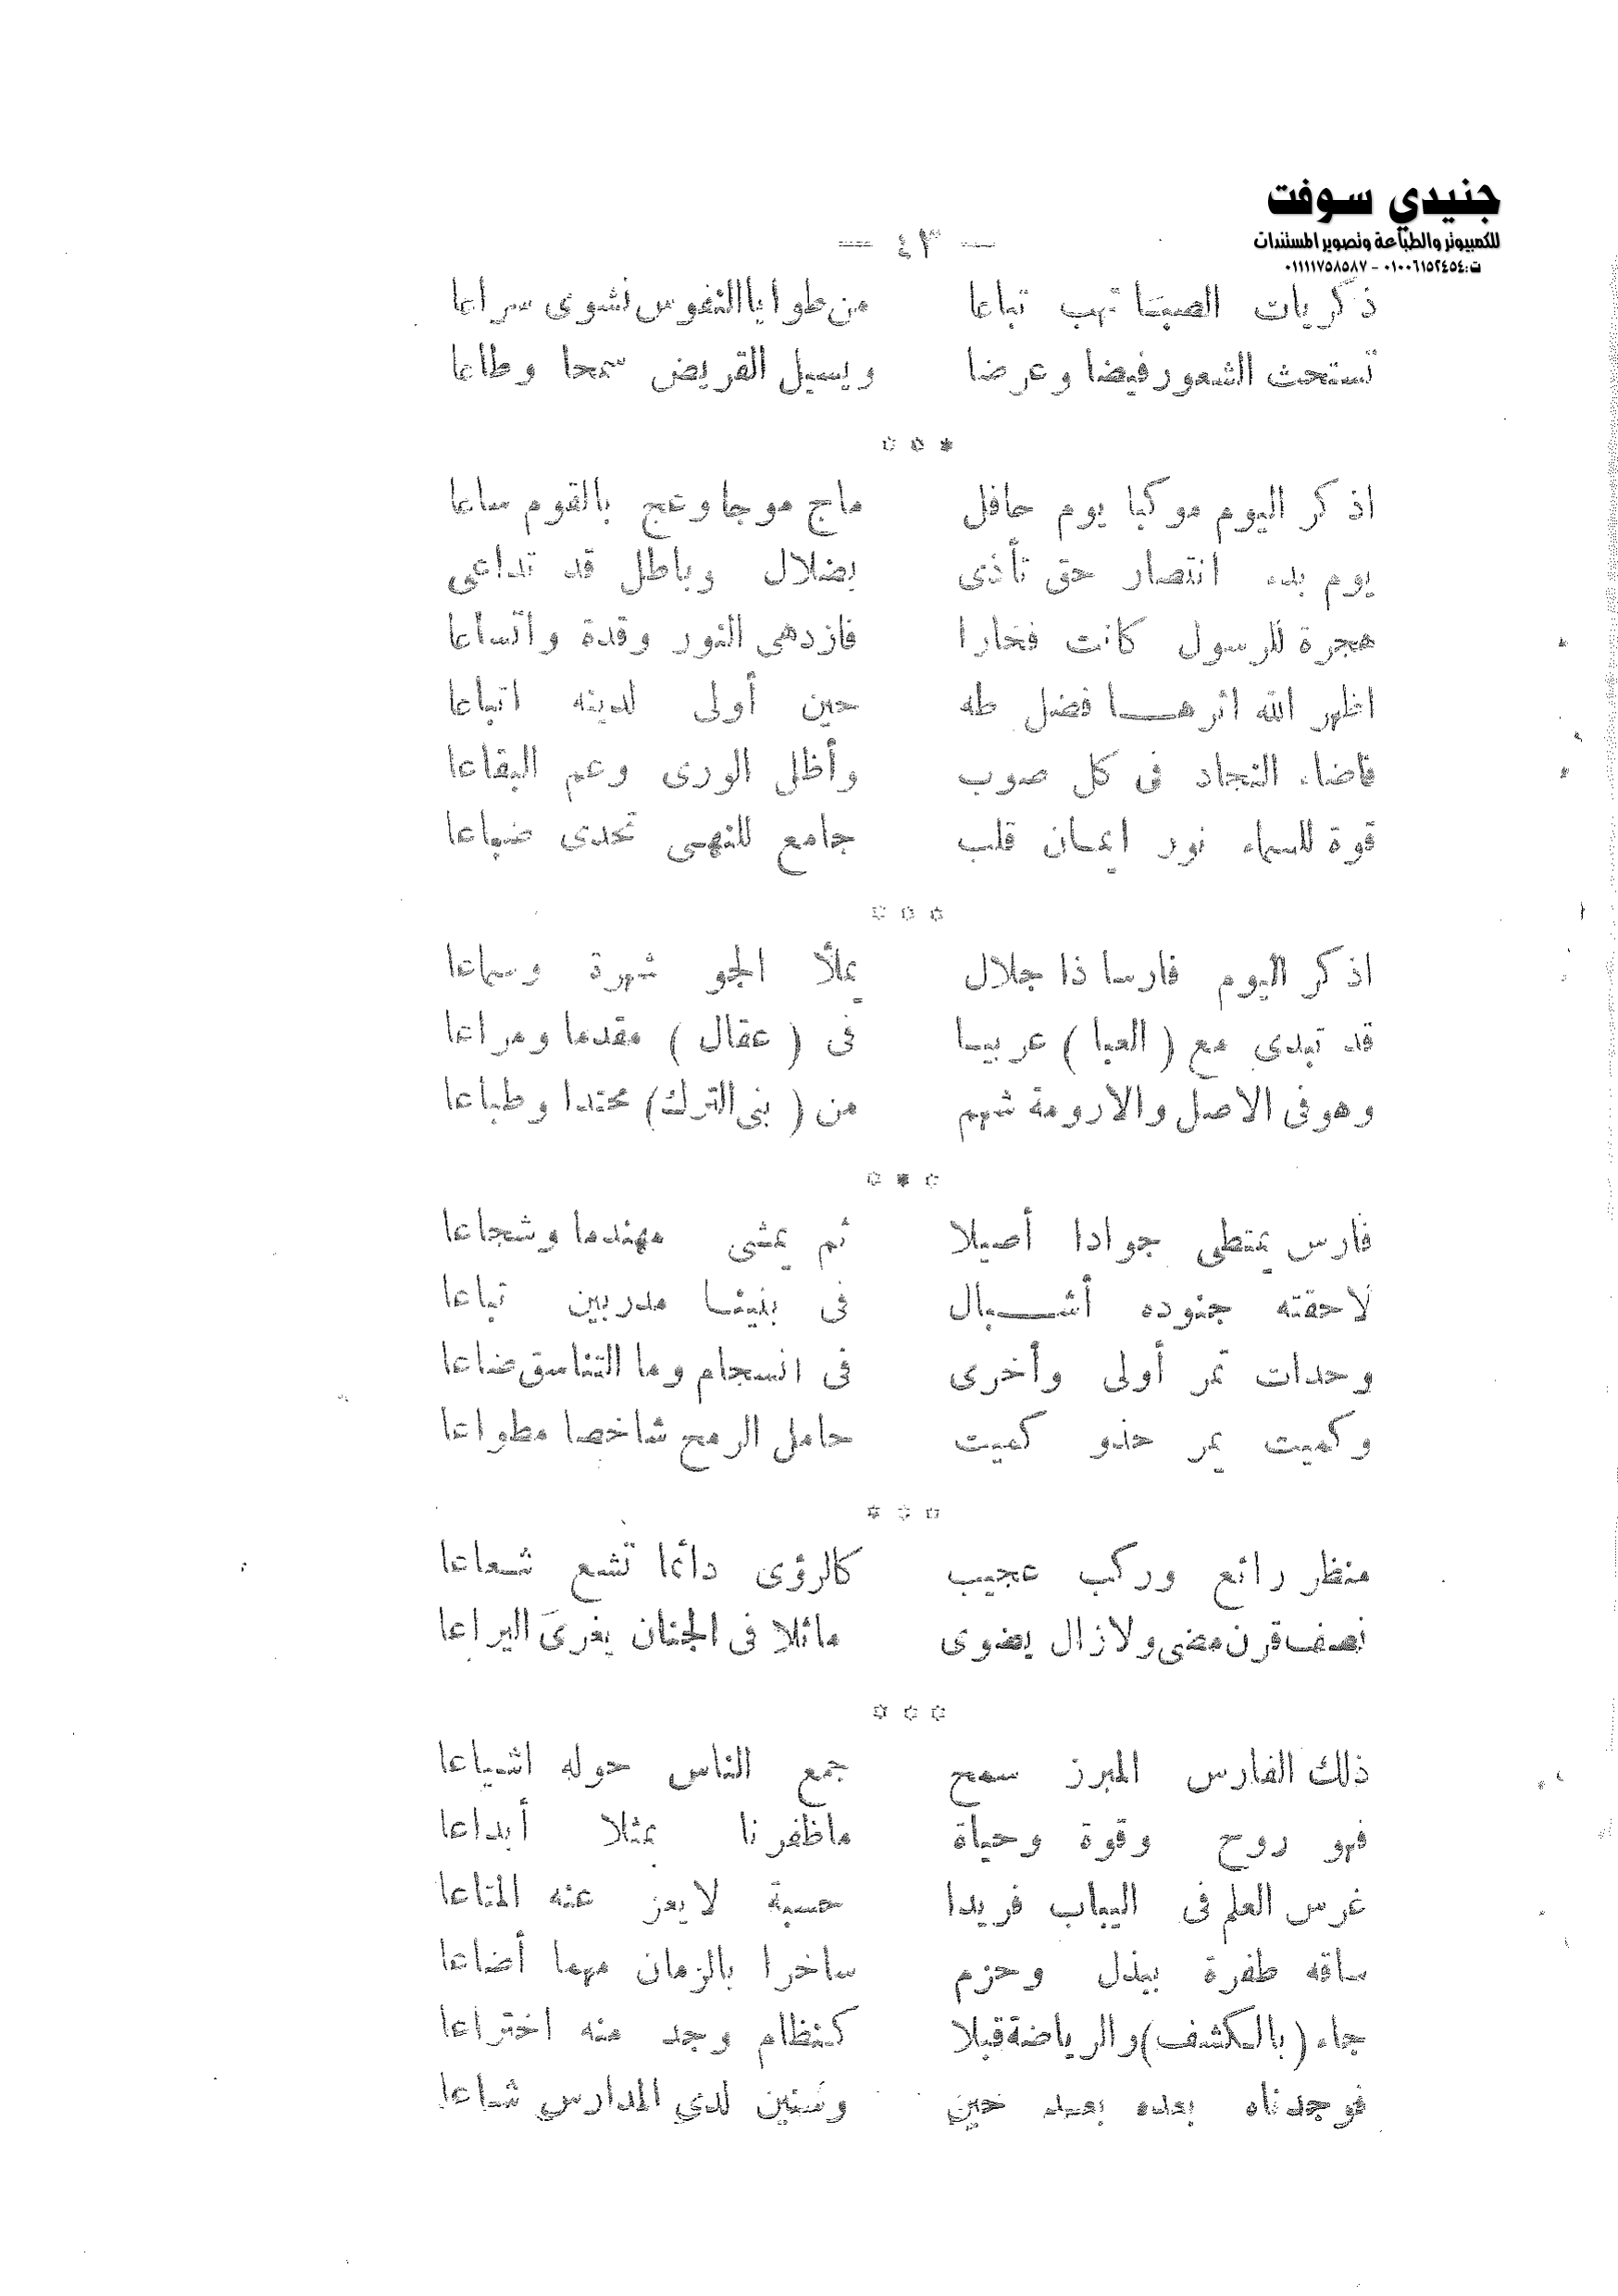 جنيدي سوفت
للكمبيوتر والطباعة وتصوير المستندات
ت: ٠١٠٠٦١٥٢٤٥٤ - ٠١١١١٧٥٨٥٨٧
— ٤٣ —
ذكريات الصبا تهب تباعا من طوايا النفوس نشوى سراعا
تستحث الشعور فيضا وعرضا ويسيل القريض سمحا وطاعا
* * *
اذكر اليوم موكبا يوم حافل ماج موجا وعج بالقوم ساعا
يوم بدء انتصار حق تأذى بضلال وباطل قد تداعى
هجرة للرسول كانت فخارا فازدهى النور وقدة واتساعا
اظهر الله اثرهـا فضل طه حين أولى لدينه اتباعا
فاضاء النجاد فى كل صوب وأظل الورى وعم البقاعا
قوة للسماء نور ايمان قلب جامع للنهى تحدى ضياعا
* * *
اذكر اليوم فارسا ذا جلال يملأ الجو شهرة وسماعا
قد تبدى مع ( العبا ) عربيا فى ( عقال ) مقدما ومراعا
وهو فى الاصل والارومة شهم من ( بنى الترك) محتدا وطباعا
* * *
فارس يمتطى جوادا أصيلا ثم يمشى مهندما وشجاعا
لاحقته جنوده أشـبال فى بنيتها مدربين تباعا
وحدات تمر أولى وأخرى فى انسجام وما التناسق ضاعا
وكميت يمر حذو كميت حامل الرمح شاخصا مطواعا
* * *
منظر رائع وركب عجيب كالرؤى دائما تشع شعاعا
نصف قرن مضى ولازال يضوى ماثلا فى الجنان يغرى اليراعا
* * *
ذلك الفارس المبرز سمح جمع الناس حوله اشياعا
فهو روح وقوة وحياة ماظفرنا بمثلا أبداعا
غرس العلم فى اليباب فريدا حسبة لايعز عنه المتاعا
ساقه طفرة ببذل وحزم ساخرا بالزمان مهما أضاعا
جاء (بالكشف) والرياضة قبلا كنظام وجد منه اختراعا
فوجدناه بعده بعيد حين وسنين لدي المدارس شاعا